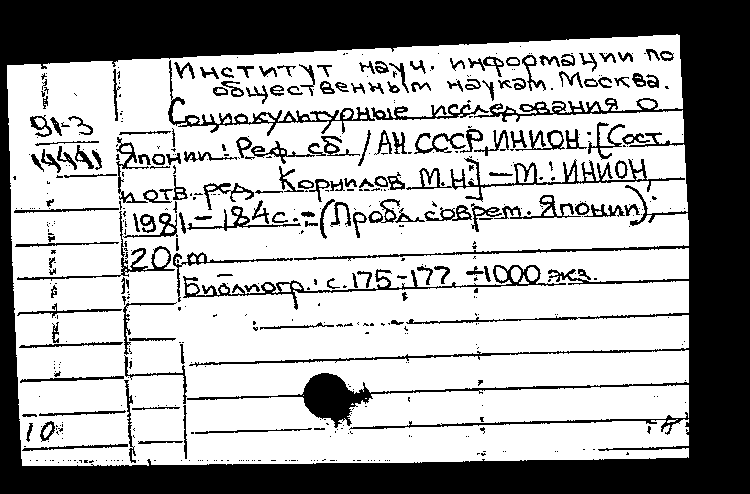 Институт науч. информации по
общественным наукам. Москва.
Социокультурные исследования о
91-3
Японии: Реф. сб. / АН СССР, ИНИОН; [Сост.
и отв. ред. Корнилов М.Н.] — М.: ИНИОН,
1981. - 184 с. - (Пробл. соврем. Японии);
20 см.
Библиогр.: с. 175-177. - 1000 экз.
10